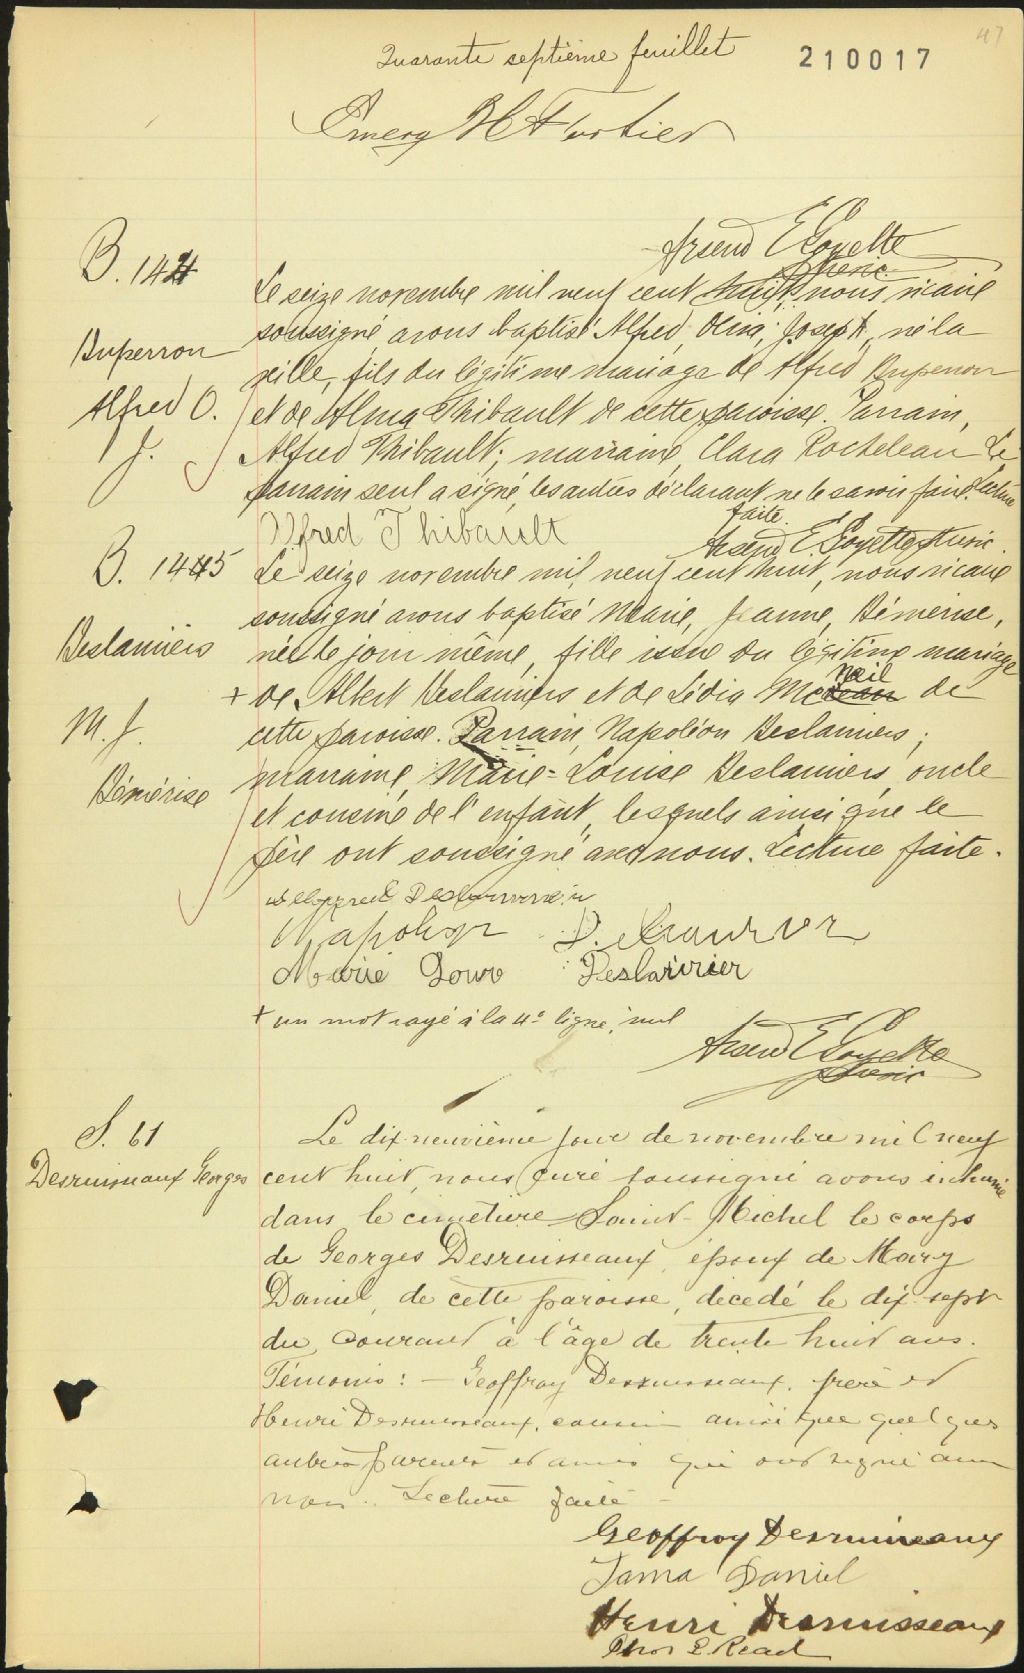 47
Quarante septième feuillet
210017
Emery H Fortier
Arsène E Goyette
ptre vic.
B. 144
Duperron
Alfred O.
J.
Le seize novembre mil neuf cent huit, nous vicaire
soussigné avons baptisé Alfred, Oliva, Joseph, né la
veille, fils du légitime mariage de Alfred Duperron
et de Alma Thibault de cette paroisse. Parrain,
Alfred Thibault; marraine, Clara Rocheleau Le
parrain seul a signé, les autres déclarant ne le savoir faire. Lecture
faite.
Alfred Thibault
Arsène E. Goyette ptre vic.
B. 145
Deslauriers
M. J.
Démérise
Le seize novembre mil neuf cent huit, nous vicaire
soussigné avons baptisé Marie, Jeanne, Démérise,
née le jour même, fille issue du légitime mariage
+ de Albert Deslauriers et de Lédia McNeil de
cette paroisse. Parrain, Napoléon Deslauriers;
marraine, Marie-Louise Deslauriers, oncle
et cousine de l'enfant, lesquels ainsi que le
père ont soussigné avec nous. Lecture faite.
Marie Deslaurier
+ un mot rayé à la 4e ligne, nul
Arsène E Goyette
ptre vic
S. 61
Desruisseaux Georges
Le dix-neuvième jour de novembre mil neuf
cent huit, nous curé soussigné avons inhumé
dans le cimetière Saint-Michel le corps
de Georges Desruisseaux, époux de Mary
Daniel, de cette paroisse, décédé le dix-sept
du courant à l'âge de trente huit ans.
Témoins: - Geoffroy Desruisseaux, frère et
Henri Desruisseaux, cousin ainsi que quelques
autres parents et amis qui ont signé avec
nous. Lecture faite -
Geoffroy Desruisseaux
Daniel
Henri Desruisseaux
Thos E. Read